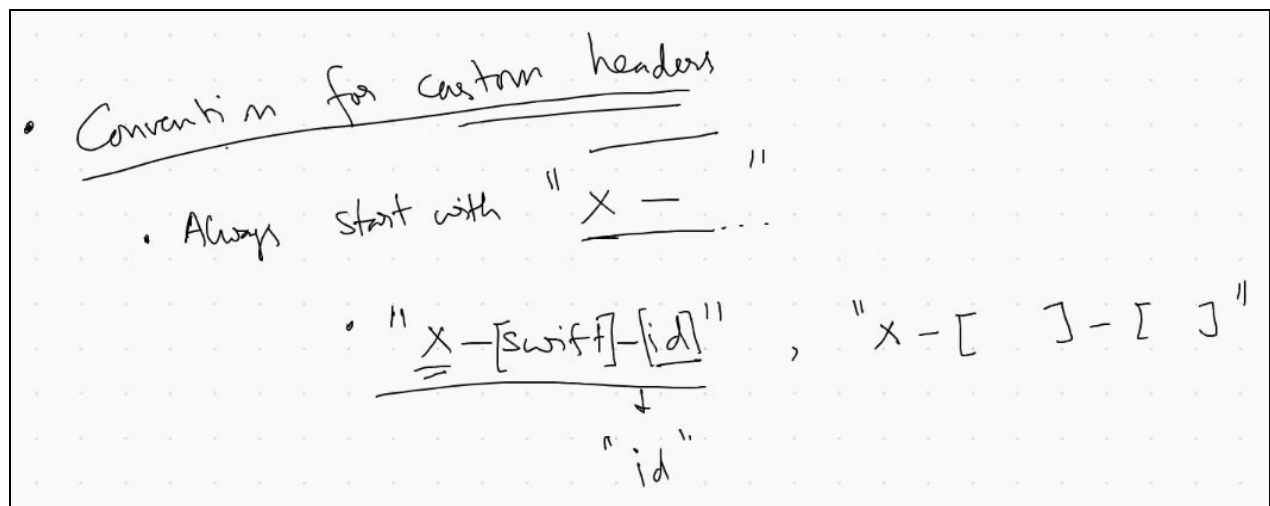 • Convention for custom headers
• Always start with "X - ..."
• "X-[swift]-[id]" , "X-[ ]-[ ]"
"id"